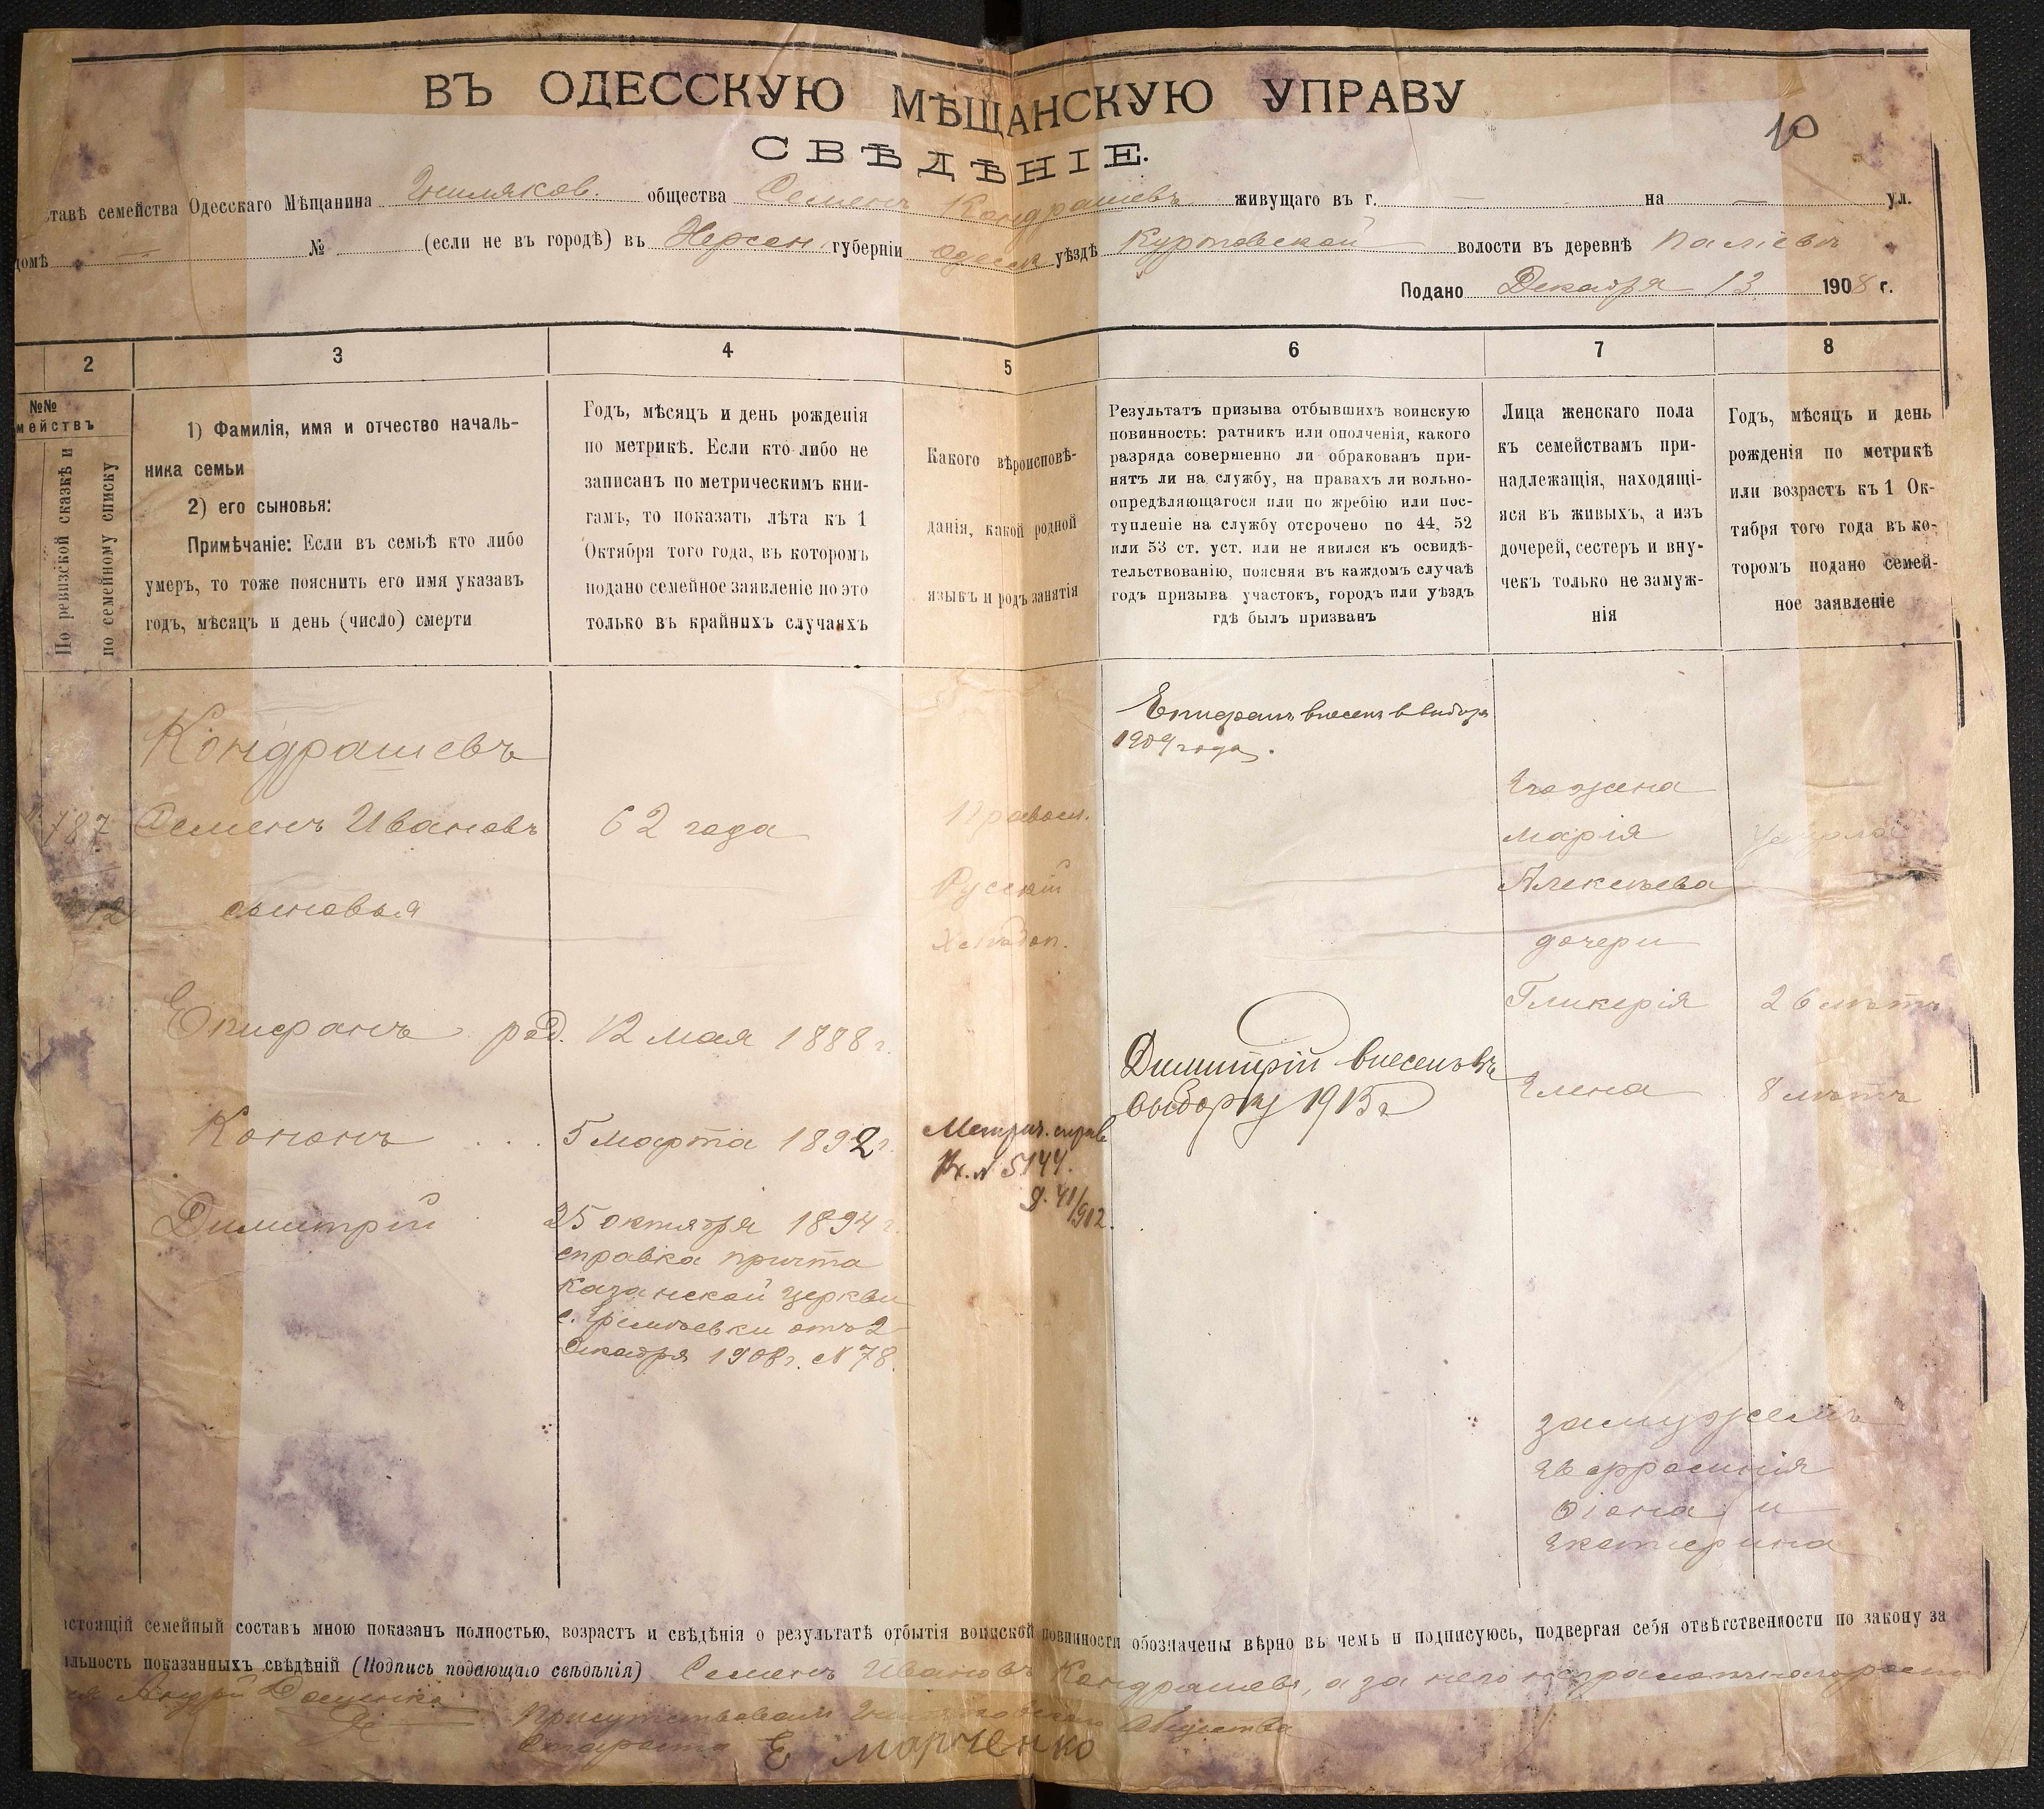 ВЪ ОДЕССКУЮ МѢЩАНСКУЮ УПРАВУ
10
СВѢДѢНІЕ.
ставѣ семейства Одесскаго Мѣщанина Гниляков. общества Семенъ Кондрашевъ живущаго въ г. — на — ул.
домѣ — № (если не въ городѣ) въ Херсон. губерніи Одесск уѣздѣ Куртовской волости въ деревнѣ Паліевъ
Подано Декабря 13 1908 г.
2
3
4
5
6
7
8
№№
мействъ
По ревизской сказкѣ и
по семейному списку
1) Фамилія, имя и отчество началь-
ника семьи
2) его сыновья:
Примѣчаніе: Если въ семьѣ кто либо
умеръ, то тоже пояснить его имя указавъ
годъ, мѣсяцъ и день (число) смерти
Годъ, мѣсяцъ и день рожденія
по метрикѣ. Если кто либо не
записанъ по метрическимъ кни-
гамъ, то показать лѣта къ 1
Октября того года, въ которомъ
подано семейное заявленіе но это
только въ крайнихъ случаяхъ
Какого вѣроисповѣ-
данія, какой родной
языкъ и родъ занятія
Результатъ призыва отбывшихъ воинскую
повинность: ратникъ или ополченія, какого
разряда совершенно ли обракованъ при-
нятъ ли на службу, на правахъ ли вольно-
опредѣляющагося или по жребію или пос-
тупленіе на службу отсрочено по 44, 52
или 53 ст. уст. или не явился къ освидѣ-
тельствованію, поясняя въ каждомъ случаѣ
годъ призыва участокъ, городъ или уѣздъ
гдѣ былъ призванъ
Лица женскаго пола
къ семействамъ при-
надлежащія, находящі-
яся въ живыхъ, а изъ
дочерей, сестеръ и вну-
чекъ только не замуж-
нія
Годъ, мѣсяцъ и день
рожденія по метрикѣ
или возрастъ къ 1 Ок-
тября того года въ ко-
торомъ подано семей-
ное заявленіе
Епифанъ внесенъ в выборъ
1909 года.
Кондрашевъ
787 Семенъ Ивановъ 62 года Правосл.
Русскій
Хлѣбоп.
Его жена
Марія умерла
Алексѣева
12 сыновья
дочери
Гликерія 26 лѣтъ
Епифанъ род. 12 мая 1888 г.
Димитрій внесенъ въ
выборку 1915 г
Елена 8 лѣтъ
Кононъ . . . 5 марта 1892 г.
Метрич. справ
Вх. № 5144.
д. 41/912.
Димитрій 25 октября 1894 г.
справка причта
Казанской церкви
отъ 2
Декабря 1908 г. № 78.
замужемъ
Евфросинія
и
Екатерина
астоящій семейный составъ мною показанъ полностью, возрастъ и свѣдѣнія о результатѣ отбытія воинской повинности обозначены вѣрно въ чемъ и подписуюсь, подвергая себя отвѣтственности по закону за
альность показанныхъ свѣдѣній (Подпись подающаго свѣдѣнія) Семенъ Ивановъ Кондрашевъ, а за него неграмотнаго роспи
ся Андрей Доценко
Присутствовалъ Гниляковскаго Общества
Староста Е Марченко